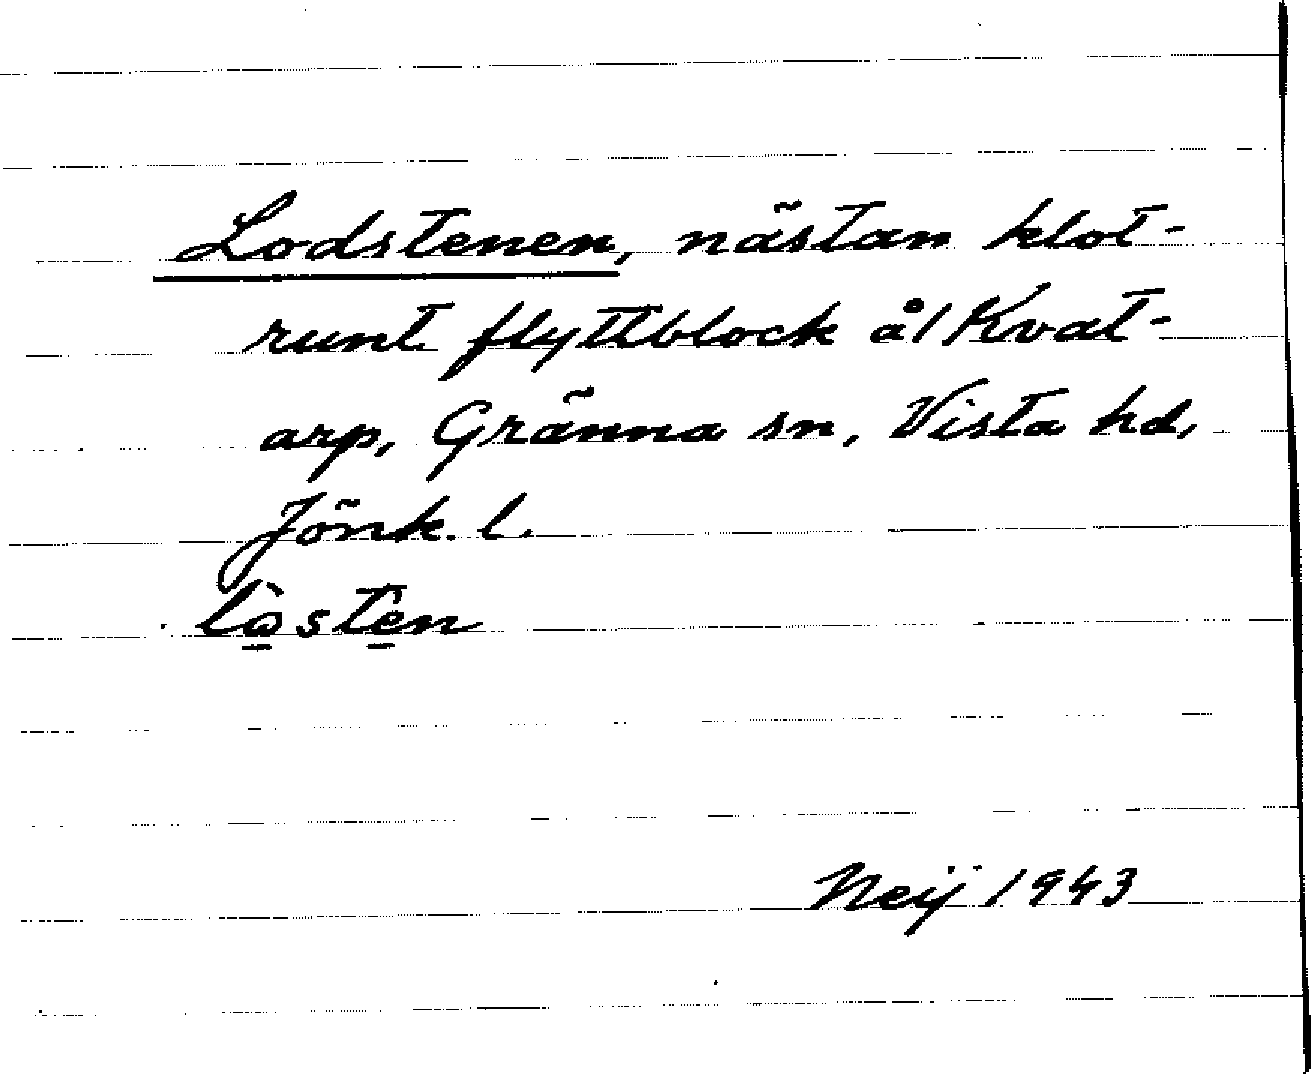 Lodstenen, nästan klot-
runt flyttblock å/Kvat-
arp, Gränna sn, Vista hd,
Jönk. l.
lò̱ste̱n
Neij 1943